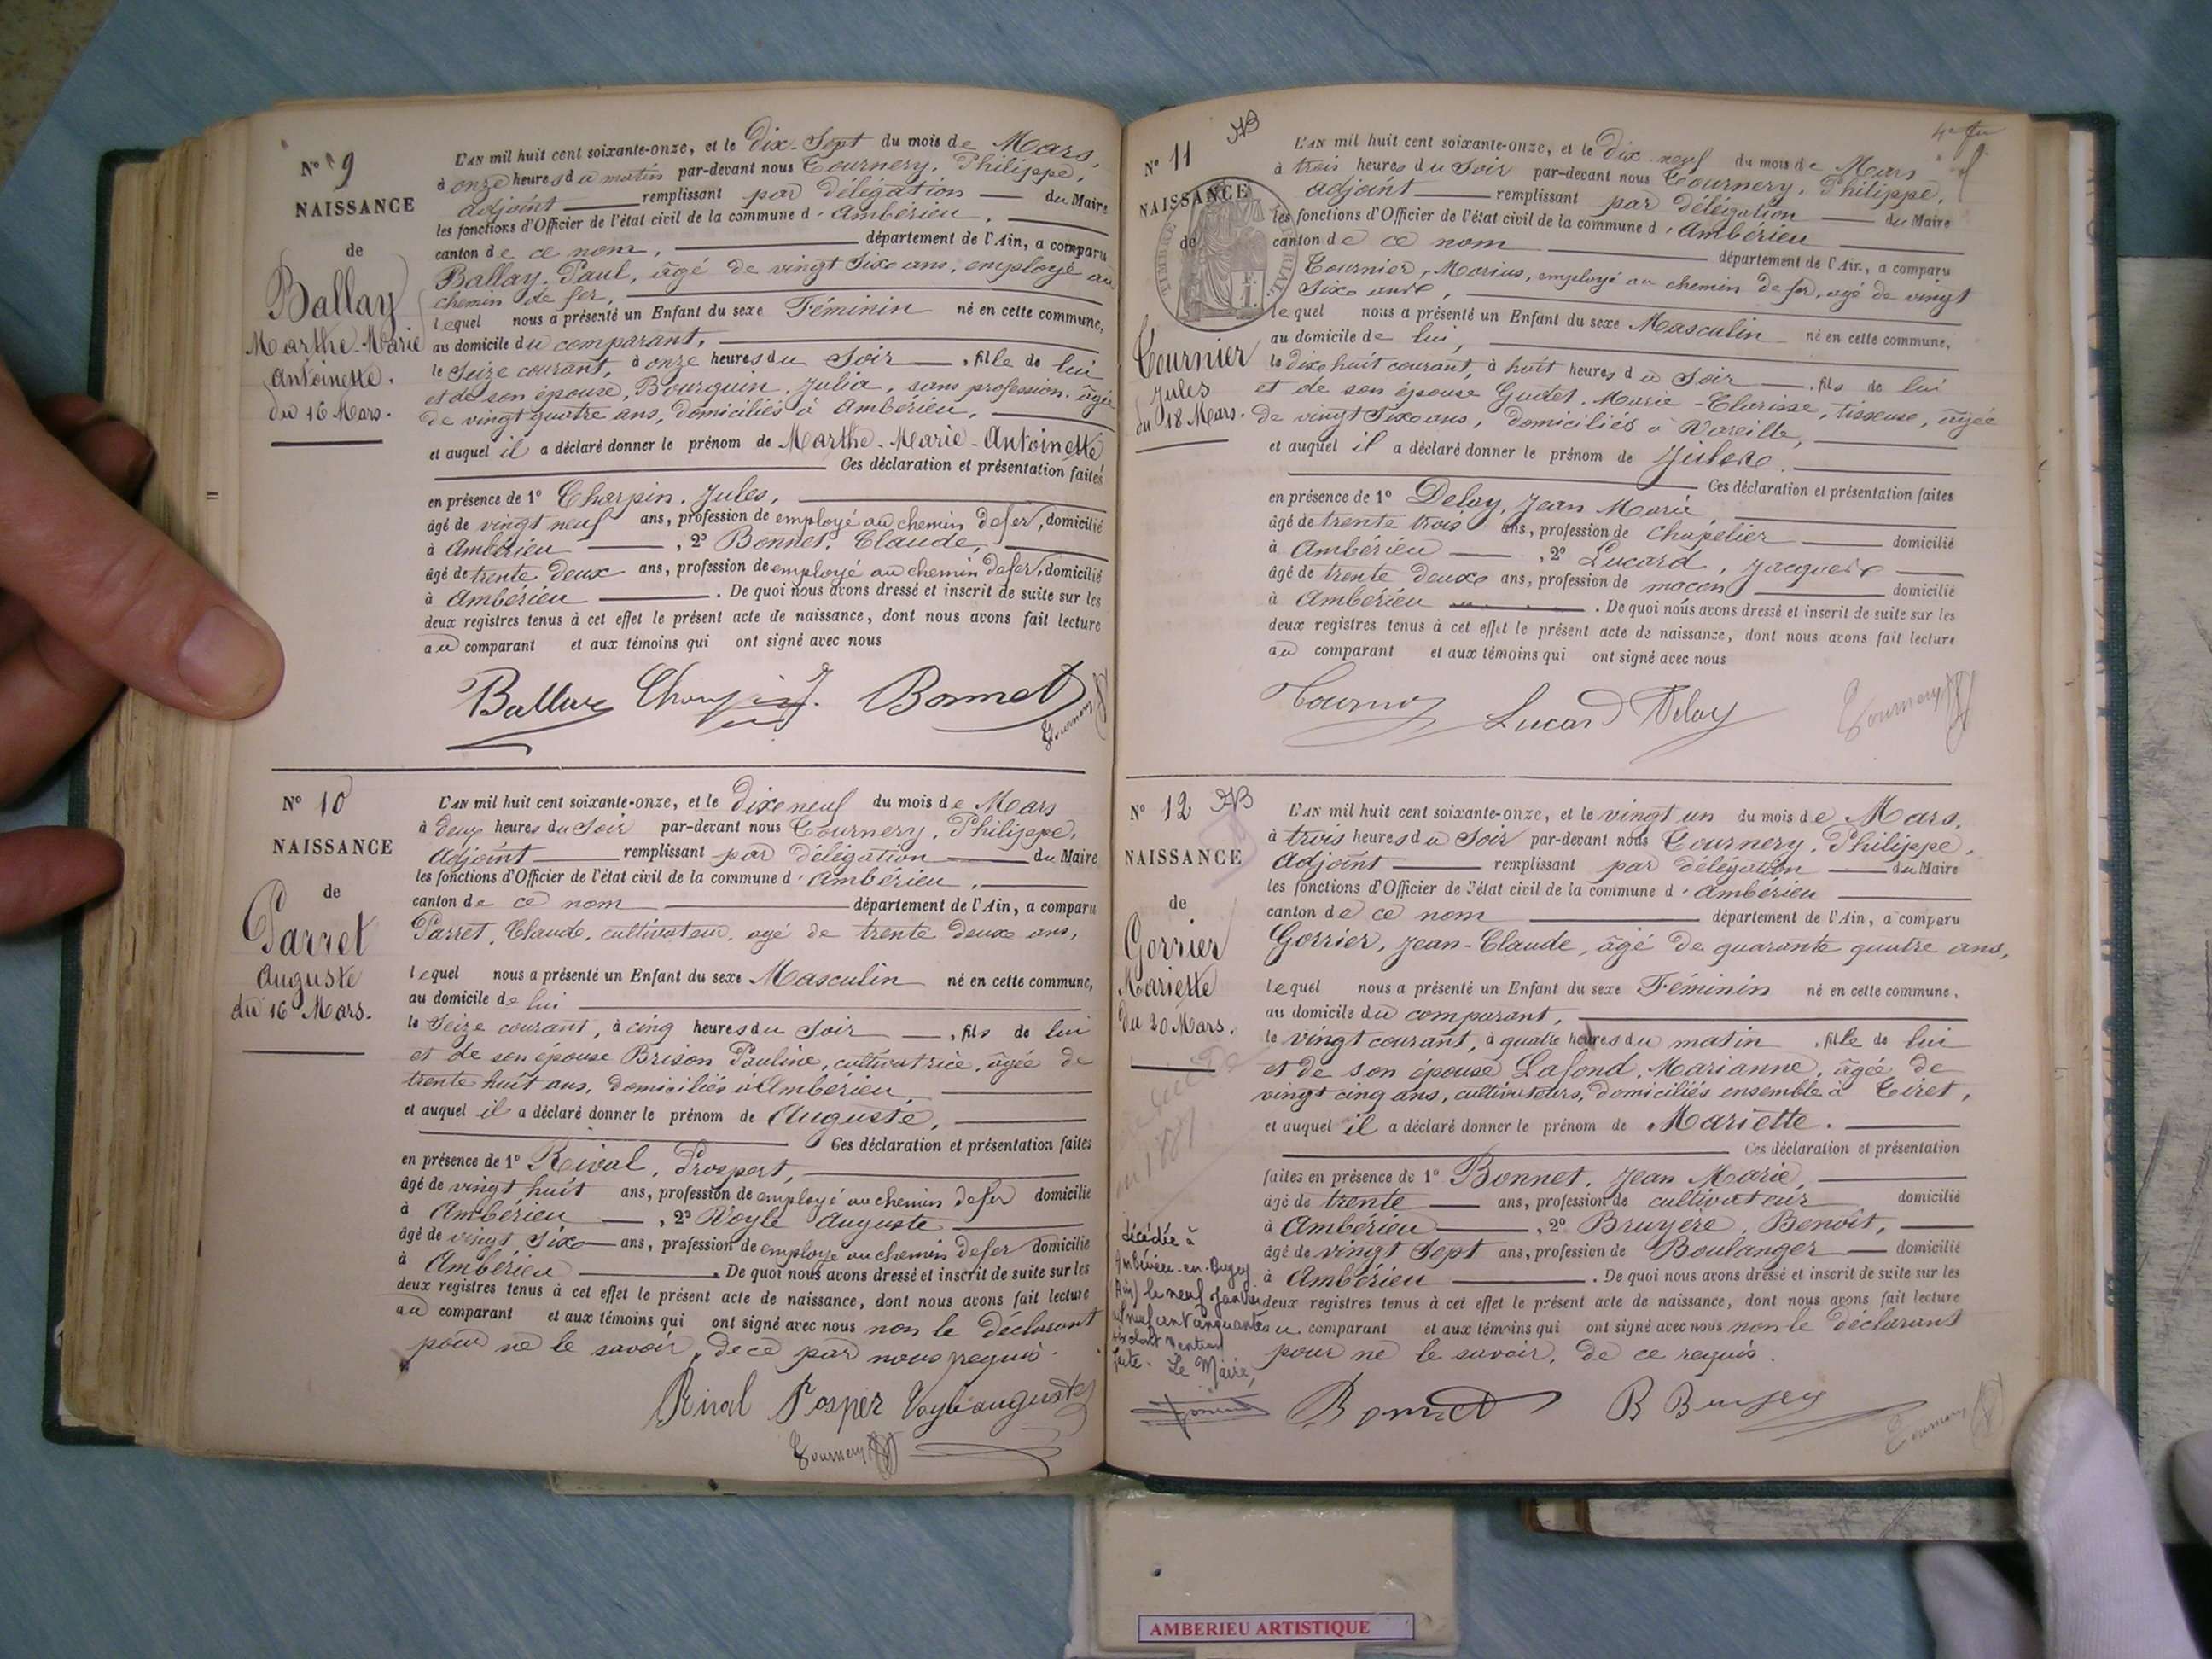 N° 9
NAISSANCE
de
Ballay
Marthe-Marie
Antoinette.
du 16 Mars.
L'AN mil huit cent soixante-onze, et le Dix-Sept du mois de Mars,
à onze heures du matin par-devant nous Tournery, Philippe,
adjoint remplissant par délégation du Maire
les fonctions d'Officier de l'état civil de la commune d'Ambérieu,
canton de ce nom, département de l'Ain, a comparu
Ballay, Paul, âgé de vingt Six ans, employé au
chemin de fer,
lequel nous a présenté un Enfant du sexe Féminin né en cette commune,
au domicile du comparant,
le Seize courant, à onze heures du Soir, fille de lui
et de son épouse, Bourquin, Julia, sans profession, âgée
de vingt quatre ans, domiciliés à Ambérieu,
et auquel il a déclaré donner le prénom de Marthe-Marie-Antoinette
Ces déclaration et présentation faites
en présence de 1° Charpin, Jules,
âgé de vingt neuf ans, profession de employé au chemin de fer, domicilié
à Ambérieu, 2° Bonnet, Claude,
âgé de trente deux ans, profession de employé au chemin de fer, domicilié
à Ambérieu. De quoi nous avons dressé et inscrit de suite sur les
deux registres tenus à cet effet le présent acte de naissance, dont nous avons fait lecture
au comparant et aux témoins qui ont signé avec nous
Ballay Charpin J. Bonnet
Tournery
N° 10
NAISSANCE
de
Parret
Auguste
du 16 Mars.
L'AN mil huit cent soixante-onze, et le dix neuf du mois de Mars
à deux heures du Soir par-devant nous Tournery, Philippe,
adjoint remplissant par délégation du Maire
les fonctions d'Officier de l'état civil de la commune d'Ambérieu,
canton de ce nom département de l'Ain, a comparu
Parret, Claude, cultivateur, âgé de trente deux ans,
lequel nous a présenté un Enfant du sexe Masculin né en cette commune,
au domicile de lui
le Seize courant, à cinq heures du Soir, fils de lui
et de son épouse Brison Pauline, cultivatrice, âgée de
trente huit ans, domiciliés à Ambérieu
et auquel il a déclaré donner le prénom de Auguste,
Ces déclaration et présentation faites
en présence de 1° Rival, Prospert,
âgé de vingt huit ans, profession de employé au chemin de fer domicilié
à Ambérieu, 2° Voyle Auguste
âgé de vingt Six ans, profession de employé au chemin de fer domicilié
à Ambérieu. De quoi nous avons dressé et inscrit de suite sur les
deux registres tenus à cet effet le présent acte de naissance, dont nous avons fait lecture
au comparant et aux témoins qui ont signé avec nous non le déclarant
pour ne le savoir, de ce par nous requis.
Rival Posper Voyle auguste
Tournery
N° 11
NAISSANCE
de
Tournier
Jules
du 18 Mars.
L'AN mil huit cent soixante-onze, et le Dix neuf du mois de Mars
à trois heures du Soir par-devant nous Tournery, Philippe,
adjoint remplissant par délégation du Maire
les fonctions d'Officier de l'état civil de la commune d'Ambérieu
canton de ce nom département de l'Ain, a comparu
Tournier, Marius, employé au chemin de fer, âgé de vingt
Six ans,
lequel nous a présenté un Enfant du sexe Masculin né en cette commune,
au domicile de lui,
le dix huit courant, à huit heures du Soir, fils de lui
et de son épouse Gudet, Marie-Clarisse, tisseuse, âgée
de vingt Six ans, domiciliés à Vareille,
et auquel il a déclaré donner le prénom de Jules.
Ces déclaration et présentation faites
en présence de 1° Delay, Jean Marie
âgé de trente trois ans, profession de Chapelier domicilié
à Ambérieu, 2° Lucard, Jacques
âgé de trente deux ans, profession de maçon domicilié
à Ambérieu. De quoi nous avons dressé et inscrit de suite sur les
deux registres tenus à cet effet le présent acte de naissance, dont nous avons fait lecture
au comparant et aux témoins qui ont signé avec nous
Lucard Delay
Tournery
N° 12
NAISSANCE
de
Gorrier
Mariette
du 20 Mars.
Décédée à
Ambérieu-en-Bugey
(Ain) le neuf Janvier
Le Maire,
L'AN mil huit cent soixante-onze, et le vingt un du mois de Mars,
à trois heures du Soir par-devant nous Tournery, Philippe,
adjoint remplissant par délégation du Maire
les fonctions d'Officier de l'état civil de la commune d'Ambérieu
canton de ce nom département de l'Ain, a comparu
Gorrier, Jean-Claude, âgé de quarante quatre ans,
lequel nous a présenté un Enfant du sexe Féminin né en cette commune,
au domicile du comparant,
le vingt courant, à quatre heures du matin, fille de lui
et de son épouse Lafond, Marianne, âgée de
vingt cinq ans, cultivateurs, domiciliés ensemble à Tiret,
et auquel il a déclaré donner le prénom de Mariette.
Ces déclaration et présentation
faites en présence de 1° Bonnet, Jean Marie,
âgé de trente ans, profession de cultivateur domicilié
à Ambérieu, 2° Bruyere, Benoit,
âgé de vingt Sept ans, profession de Boulanger domicilié
à Ambérieu. De quoi nous avons dressé et inscrit de suite sur les
deux registres tenus à cet effet le présent acte de naissance, dont nous avons fait lecture
au comparant et aux témoins qui ont signé avec nous non le déclarant
pour ne le savoir, de ce requis.
Bonnet
Tournery
AMBERIEU ARTISTIQUE